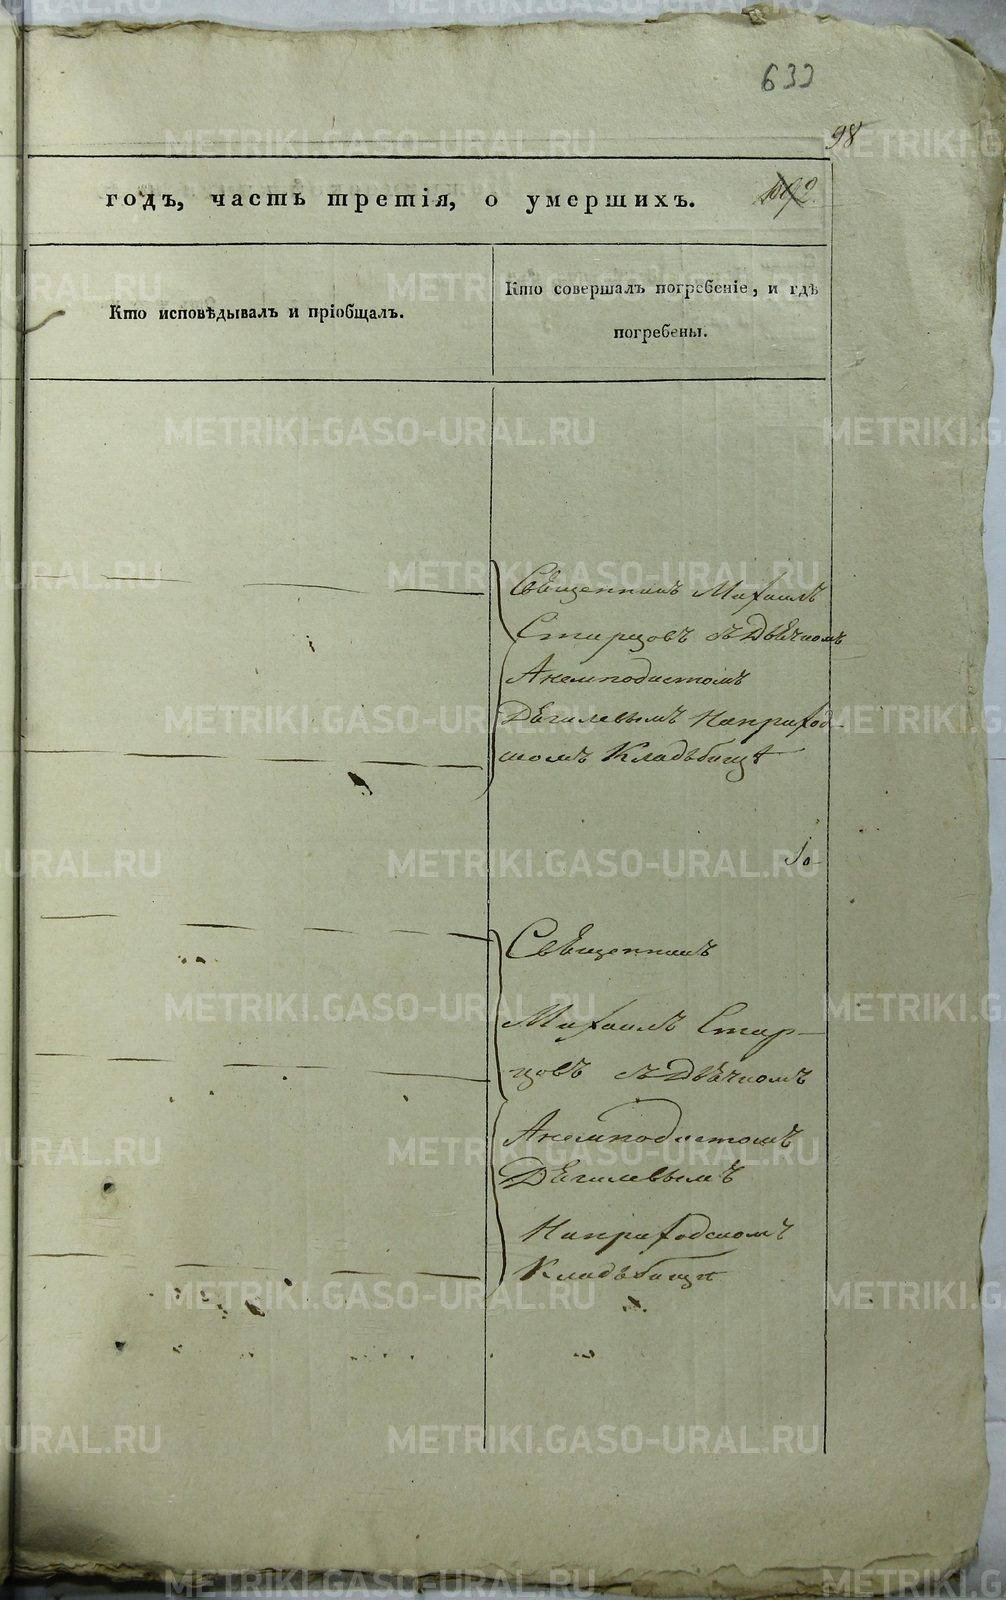 633
98
годъ, часть третія, о умершихъ.
Кто исповѣдывалъ и пріобщалъ.
Кто совершалъ погребеніе, и гдѣ
погребены.
Священникъ Михаилъ
Старцовъ съ Дьячкомъ
Анемподистомъ
Дягилевымъ На приход-
скомъ Кладъбищѣ
Священникъ
Михаилъ Стар-
цовъ съ Дьячкомъ
Анемподистомъ
Дягилевымъ
На приходскомъ
Кладъбищѣ
METRIKI.GASO-URAL.RU